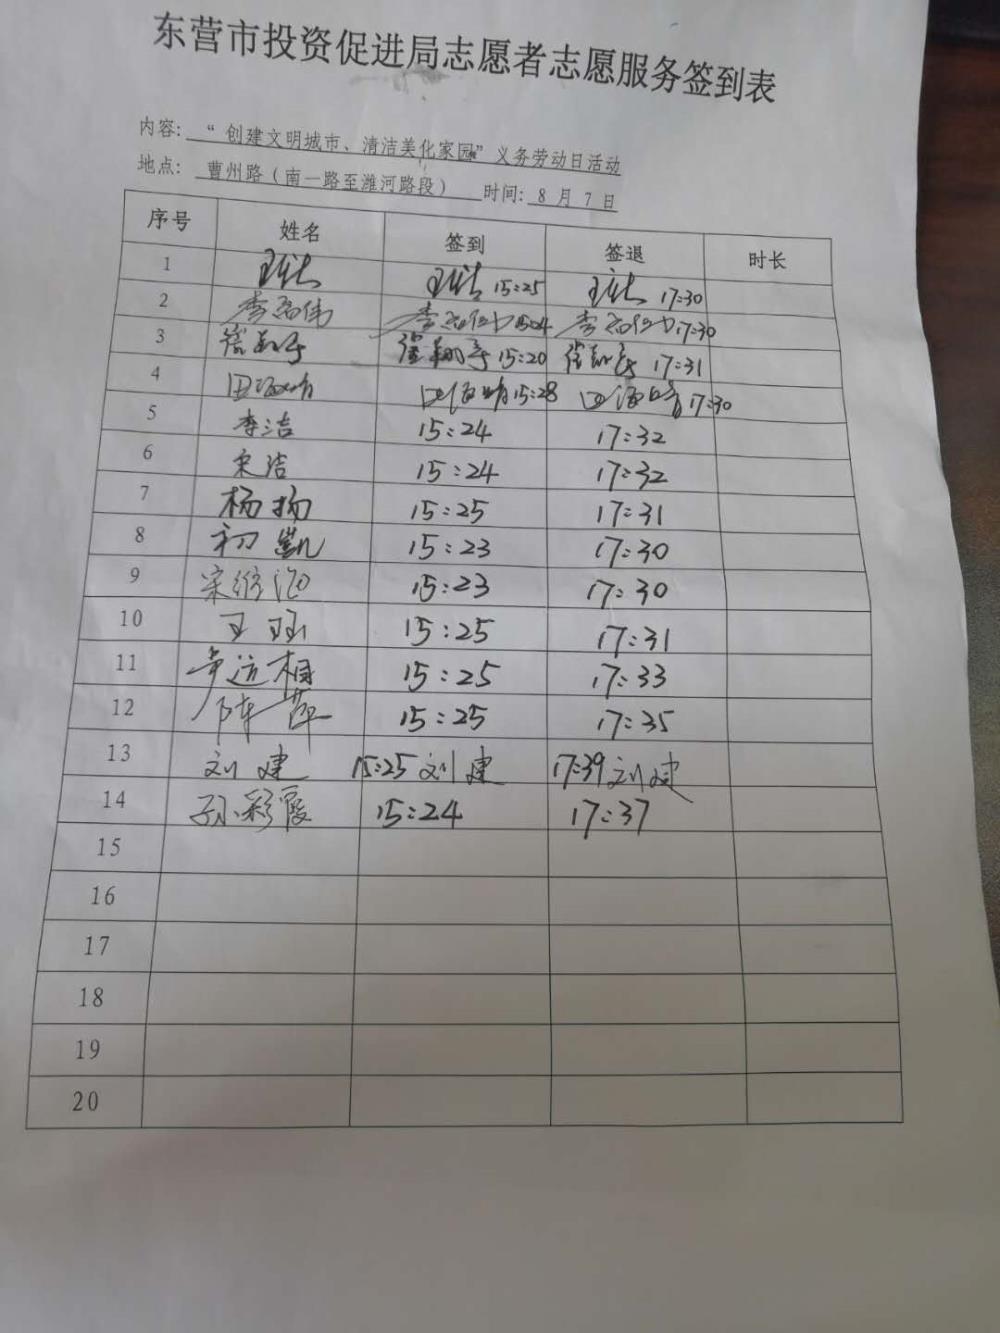 东营市投资促进局志愿者志愿服务签到表
内容: “创建文明城市、清洁美化家园”义务劳动日活动
地点: 曹州路（南一路至潍河路段） 时间: 8 月 7 日
序号 姓名 签到 签退 时长
1 15:25 17:30
2 李 伟 李 17:30
3 15:20 17:31
4 田 晴 田 晴 15:28 田海晴 17:30
5 李洁 15:24 17:32
6 宋洁 15:24 17:32
7 杨扬 15:25 17:31
8 初凯 15:23 17:30
9 宋 15:23 17:30
10 王 15:25 17:31
11 15:25 17:33
12 陈萍 15:25 17:35
13 刘建 15:25 刘建 17:39 刘建
14 孙彩霞 15:24 17:37
15
16
17
18
19
20